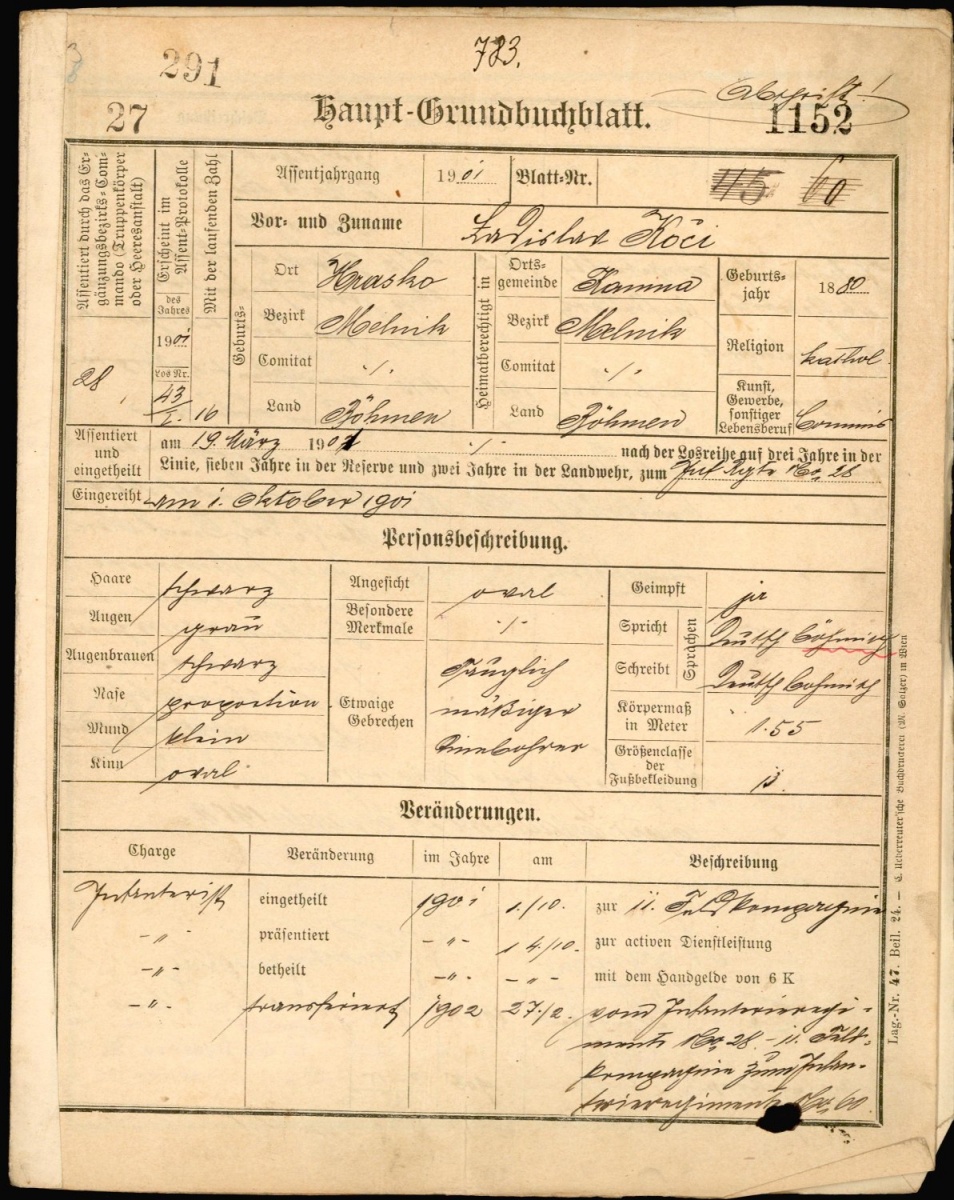 783.
291
27
Haupt-Grundbuchblatt.
Abschrift!
1152
Assentiert durch das Er-
gänzungsbezirks-Com-
mando (Truppenkörper
oder Heeresanstalt)
28
Erscheint im
Assent-Protokolle
des
Jahres
1901
Los Nr.
43
I.
Mit der laufenden Zahl
16
Assentjahrgang 1901 Blatt-Nr. 45 60
Vor- und Zuname Ladislav Kóci
Geburts-
Ort Hrasko
Bezirk Melnik
Comitat ·/·
Land Böhmen
Heimatberechtigt in
Orts-
gemeinde Kanina
Bezirk Melnik
Comitat ·/·
Land Böhmen
Geburts-
jahr 1880
Religion kathol
Kunst,
Gewerbe,
sonstiger
Lebensberuf Commis
Assentiert
und
eingetheilt
am 19. März 1901 ·/· nach der Losreihe auf drei Jahre in der
Linie, sieben Jahre in der Reserve und zwei Jahre in der Landwehr, zum Inf. Rgte No. 28
Eingereiht am 1. Oktober 1901
Personsbeschreibung.
Haare schwarz
Augen grau
Augenbrauen schwarz
Nase proportion
Mund klein
Kinn oval
Angesicht oval
Besondere
Merkmale ·/·
Etwaige
Gebrechen
Tauglich
mäßiger
Geimpft ja
Sprachen
Spricht Deutsch böhmisch
Schreibt Deutsch böhmisch
Körpermaß
in Meter 1.55
Größenclasse
der
Fußbekleidung
Veränderungen.
Charge Veränderung im Jahre am Beschreibung
Infanterist eingetheilt 1901 1./10. zur 11. Feldkompagnie
-"- präsentiert -"- 14/10. zur activen Dienstleistung
-"- betheilt -"- -"- mit dem Handgelde von 6 K
-"- transferiert 1902 27./2. vom Infanterieregi-
mente No. 28. - 11. Feld-
kompagnie zum Infan-
terieregimente No. 60.
Lag.-Nr. 47. Beil. 24. — C. Ueberreuter'sche Buchdruckerei (M. Salzer) in Wien